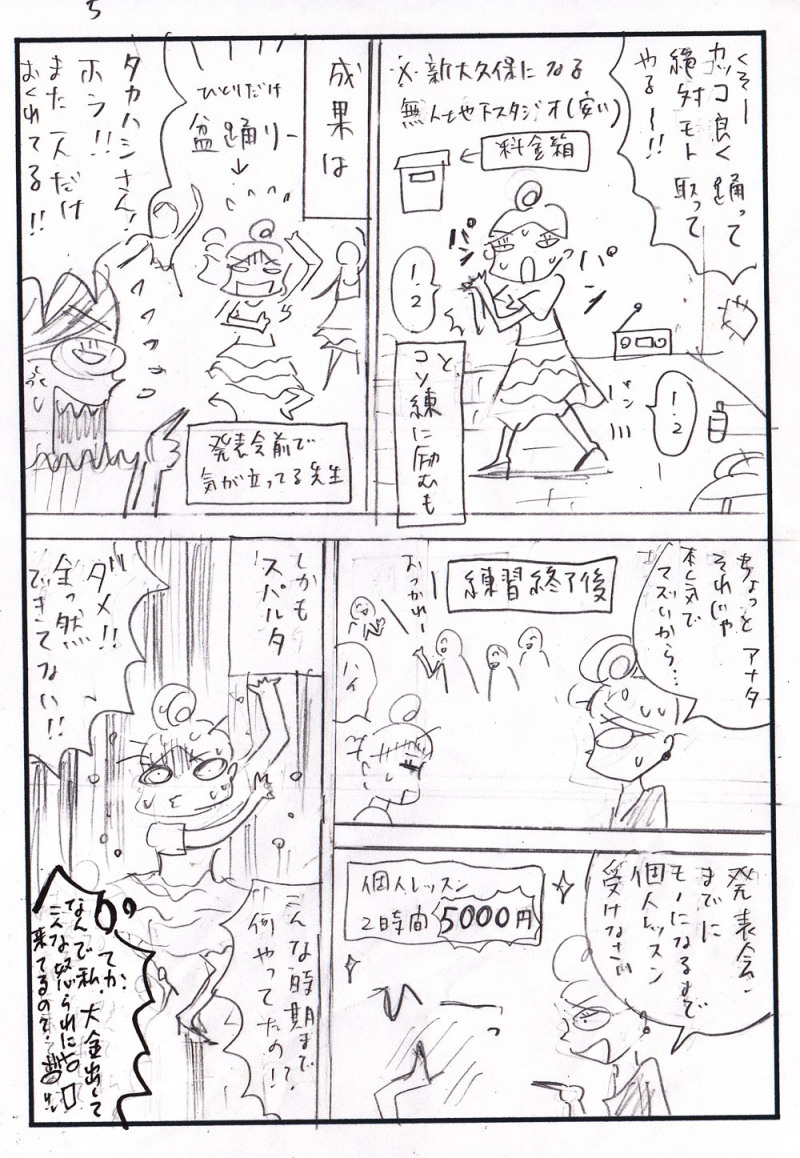 5
くそー
カッコ良く踊って
絶対モト取って
やるー!!
※新大久保にある
無人地下スタジオ(安い)
料金箱
パン
パン
1・2
パン
1・2
と
コソ練に励むも
成果は
ひとりだけ
盆踊りー
タカハシさん!
ホラ!!
また一人だけ
おくれてる!!
発表会前で
気が立ってる先生
練習終了後
おつかれー
ハイ
ちょっとアナタ
それじゃ
本気で
マズいから…
発表会
までに
モノになるまで
個人レッスン
受けなさい
個人レッスン
2時間5000円
しかも
スパルタ
ダメ!!
全っ然
できてない!!
こんな時期まで
何やってたの!?
てか、
なんで私、大金出して
こんな怒られに
来てるの?